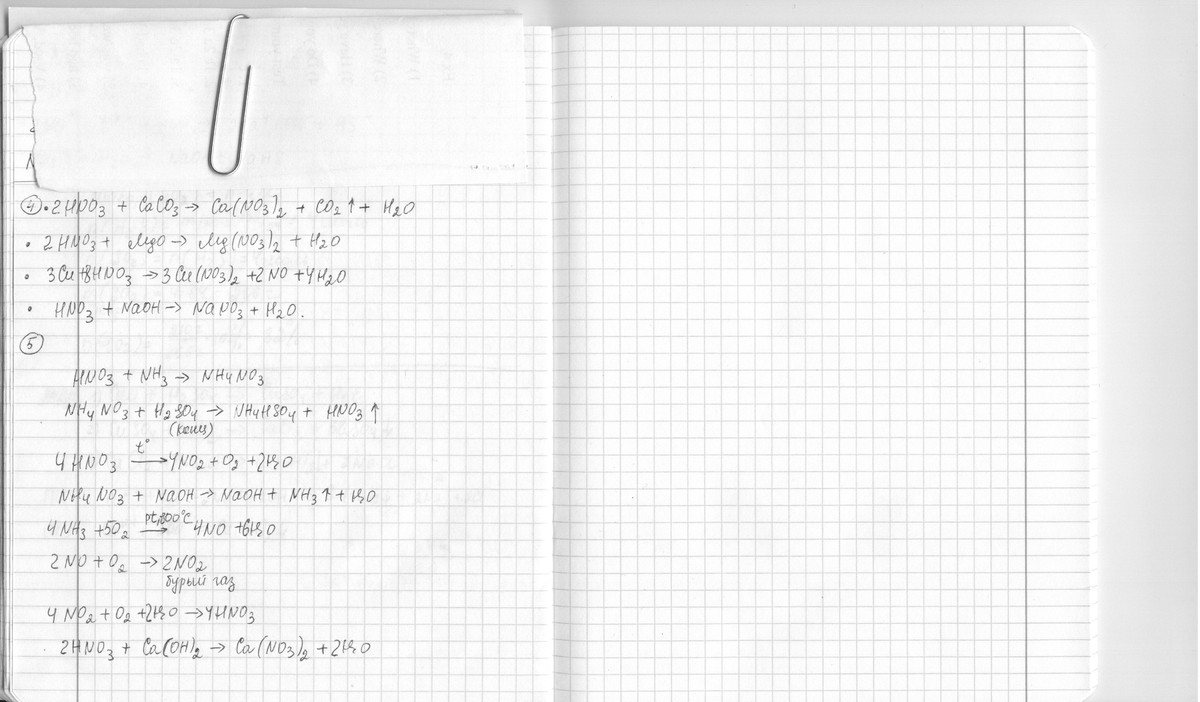 ④ • 2HNO₃ + CaCO₃ → Ca(NO₃)₂ + CO₂↑ + H₂O
• 2HNO₃ + MgO → Mg(NO₃)₂ + H₂O
• 3Cu + 8HNO₃ → 3Cu(NO₃)₂ + 2NO + 4H₂O
• HNO₃ + NaOH → NaNO₃ + H₂O.
⑤
HNO₃ + NH₃ → NH₄NO₃
NH₄NO₃ + H₂SO₄ → NH₄HSO₄ + HNO₃↑
(конц)
t°
4HNO₃ → 4NO₂ + O₂ + 2H₂O
NH₄NO₃ + NaOH → NaOH + NH₃↑ + H₂O
pt, 800°C
4NH₃ + 5O₂ → 4NO + 6H₂O
2NO + O₂ → 2NO₂
бурый газ
4NO₂ + O₂ + 2H₂O → 4HNO₃
2HNO₃ + Ca(OH)₂ → Ca(NO₃)₂ + 2H₂O